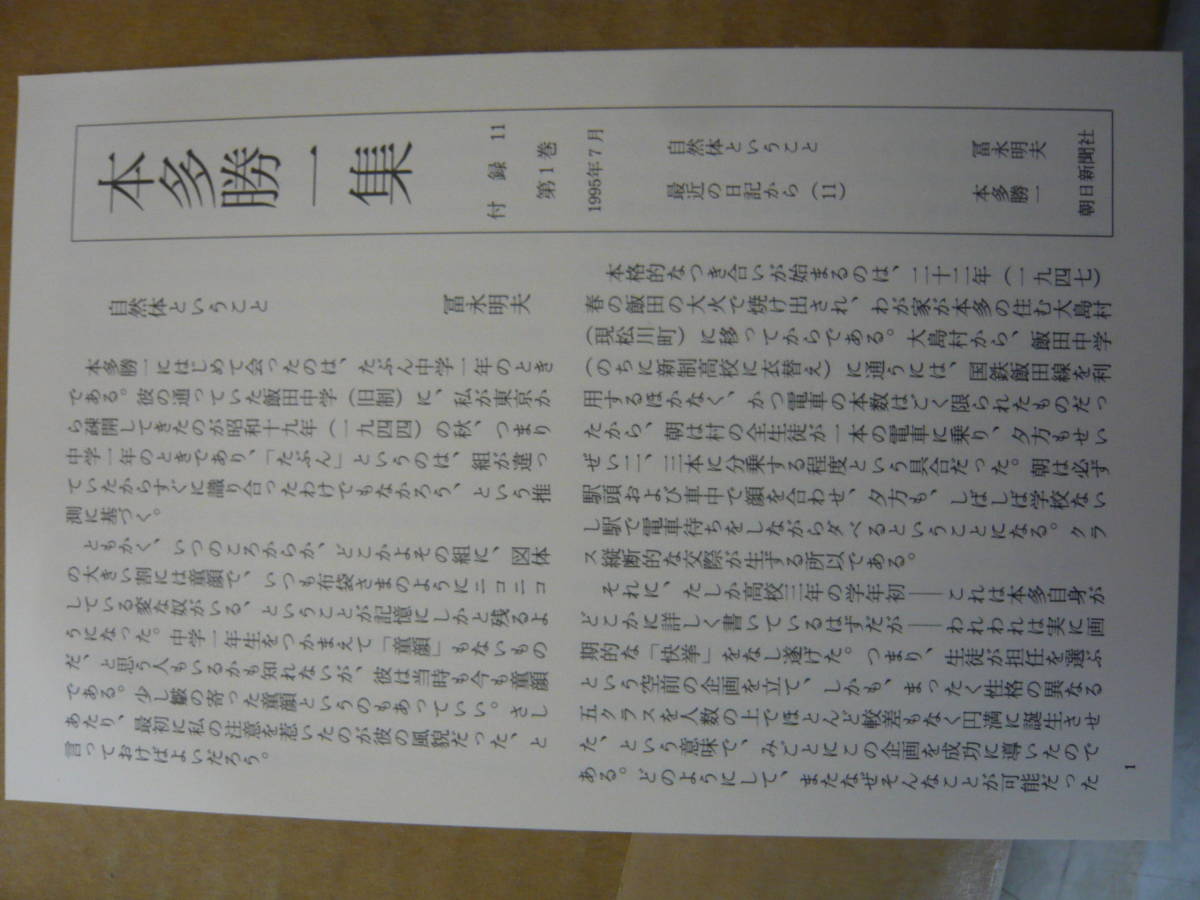 本多勝一集
付録 11
第1巻
1995年7月
自然体ということ 冨永明夫
最近の日記から(11) 本多勝一
朝日新聞社
自然体ということ
冨永明夫
本多勝一にはじめて会ったのは、たぶん中学一年のとき
である。彼の通っていた飯田中学(旧制)に、私が東京か
ら疎開してきたのが昭和十九年(一九四四)の秋、つまり
中学一年のときであり、「たぶん」というのは、組が違っ
ていたからすぐに識り合ったわけでもなかろう、という推
測に基づく。
ともかく、いつのころからか、どこかよその組に、図体
の大きい割には童顔で、いつも布袋さまのようにニコニコ
している変な奴がいる、ということが記憶にしかと残るよ
うになった。中学一年生をつかまえて「童顔」もないもの
だ、と思う人もいるかも知れないが、彼は当時も今も童顔
である。少し皺の寄った童顔というのもあっていい。さし
あたり、最初に私の注意を惹いたのが彼の風貌だった、と
言っておけばよいだろう。
本格的なつき合いが始まるのは、二十二年(一九四七)
春の飯田の大火で焼け出され、わが家が本多の住む大島村
(現松川町)に移ってからである。大島村から、飯田中学
(のちに新制高校に衣替え)に通うには、国鉄飯田線を利
用するほかなく、かつ電車の本数はごく限られたものだっ
たから、朝は村の全生徒が一本の電車に乗り、夕方もせい
ぜい二、三本に分乗する程度という具合だった。朝は必ず
駅頭および車中で顔を合わせ、夕方も、しばしば学校ない
し駅で電車待ちをしながらダベるということになる。クラ
ス縦断的な交際が生ずる所以である。
それに、たしか高校三年の学年初――これは本多自身が
どこかに詳しく書いているはずだが――われわれは実に画
期的な「快挙」をなし遂げた。つまり、生徒が担任を選ぶ
という空前の企画を立て、しかも、まったく性格の異なる
五クラスを人数の上でほとんど較差もなく円満に誕生させ
た、という意味で、みごとにこの企画を成功に導いたので
ある。どのようにして、またなぜそんなことが可能だった
1